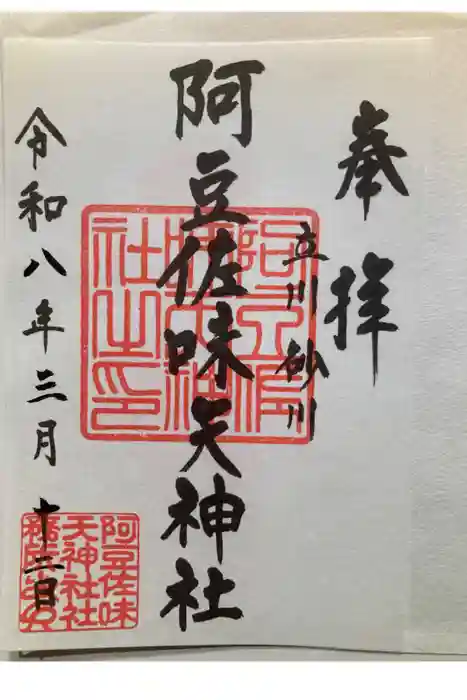 奉拝
立川砂川
阿豆佐味天神社
令和八年三月十二日
阿豆佐味
天神社社